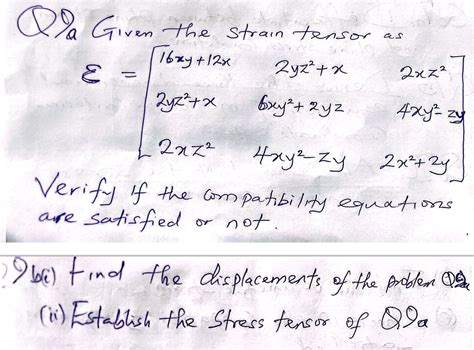 Q9a Given the strain tensor as
ε = [ 16xy+12x 2yz²+x 2xz²
2yz²+x 6xy²+2yz 4xy²-zy
2xz² 4xy²-zy 2x²+2y ]
Verify if the compatibility equations
are satisfied or not.
9b(i) Find the displacements of the problem Q9a
(ii) Establish the stress tensor of Q9a